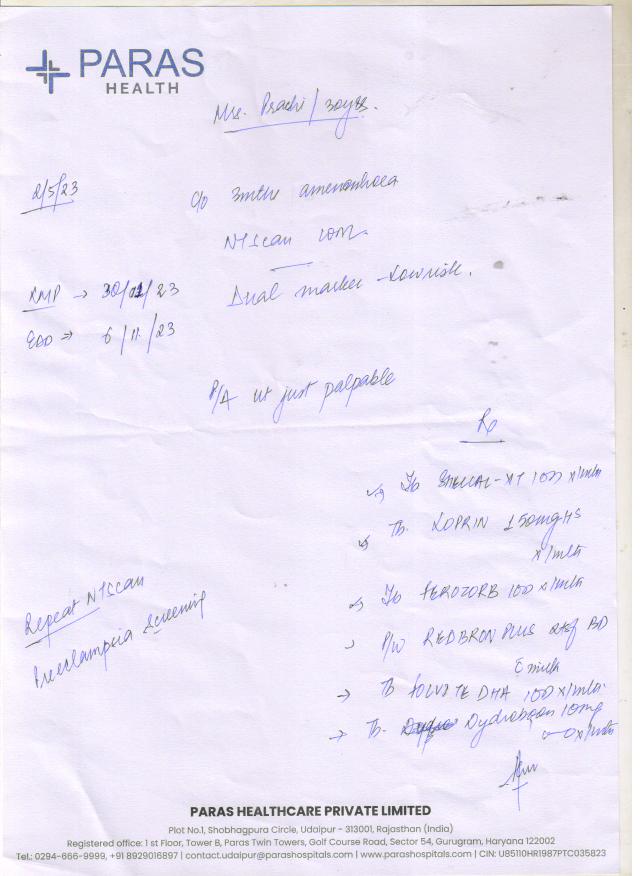 PARAS
HEALTH
Mrs. Prachi / 30yrs.
2/5/23
c/o 3mths amenorrhoea
NTScan
LMP → 30/01/23
Dual marker - Low risk.
EDD ⇒ 6/11/23
P/A ut just palpable
Rx
Tb SHELCAL-XT 1OD x1mth
Tb. LOPRIN 150mg HS
x1mth
Tb FEROZORB 1OD x1mth
Repeat NTScan
Preeclampsia Screening
P/w REDBRON PLUS 2tsf BD
c milk
→ Tb FOLVITE DHA 1OD x1mth
→ Tb. Dydroboon 10mg
x1mth
PARAS HEALTHCARE PRIVATE LIMITED
Plot No.1, Shobhagpura Circle, Udaipur - 313001, Rajasthan (India)
Registered office: 1 st Floor, Tower B, Paras Twin Towers, Golf Course Road, Sector 54, Gurugram, Haryana 122002
Tel.: 0294-666-9999, +91 8929016897 | contact.udaipur@parashospitals.com | www.parashospitals.com | CIN: U85110HR1987PTC035823